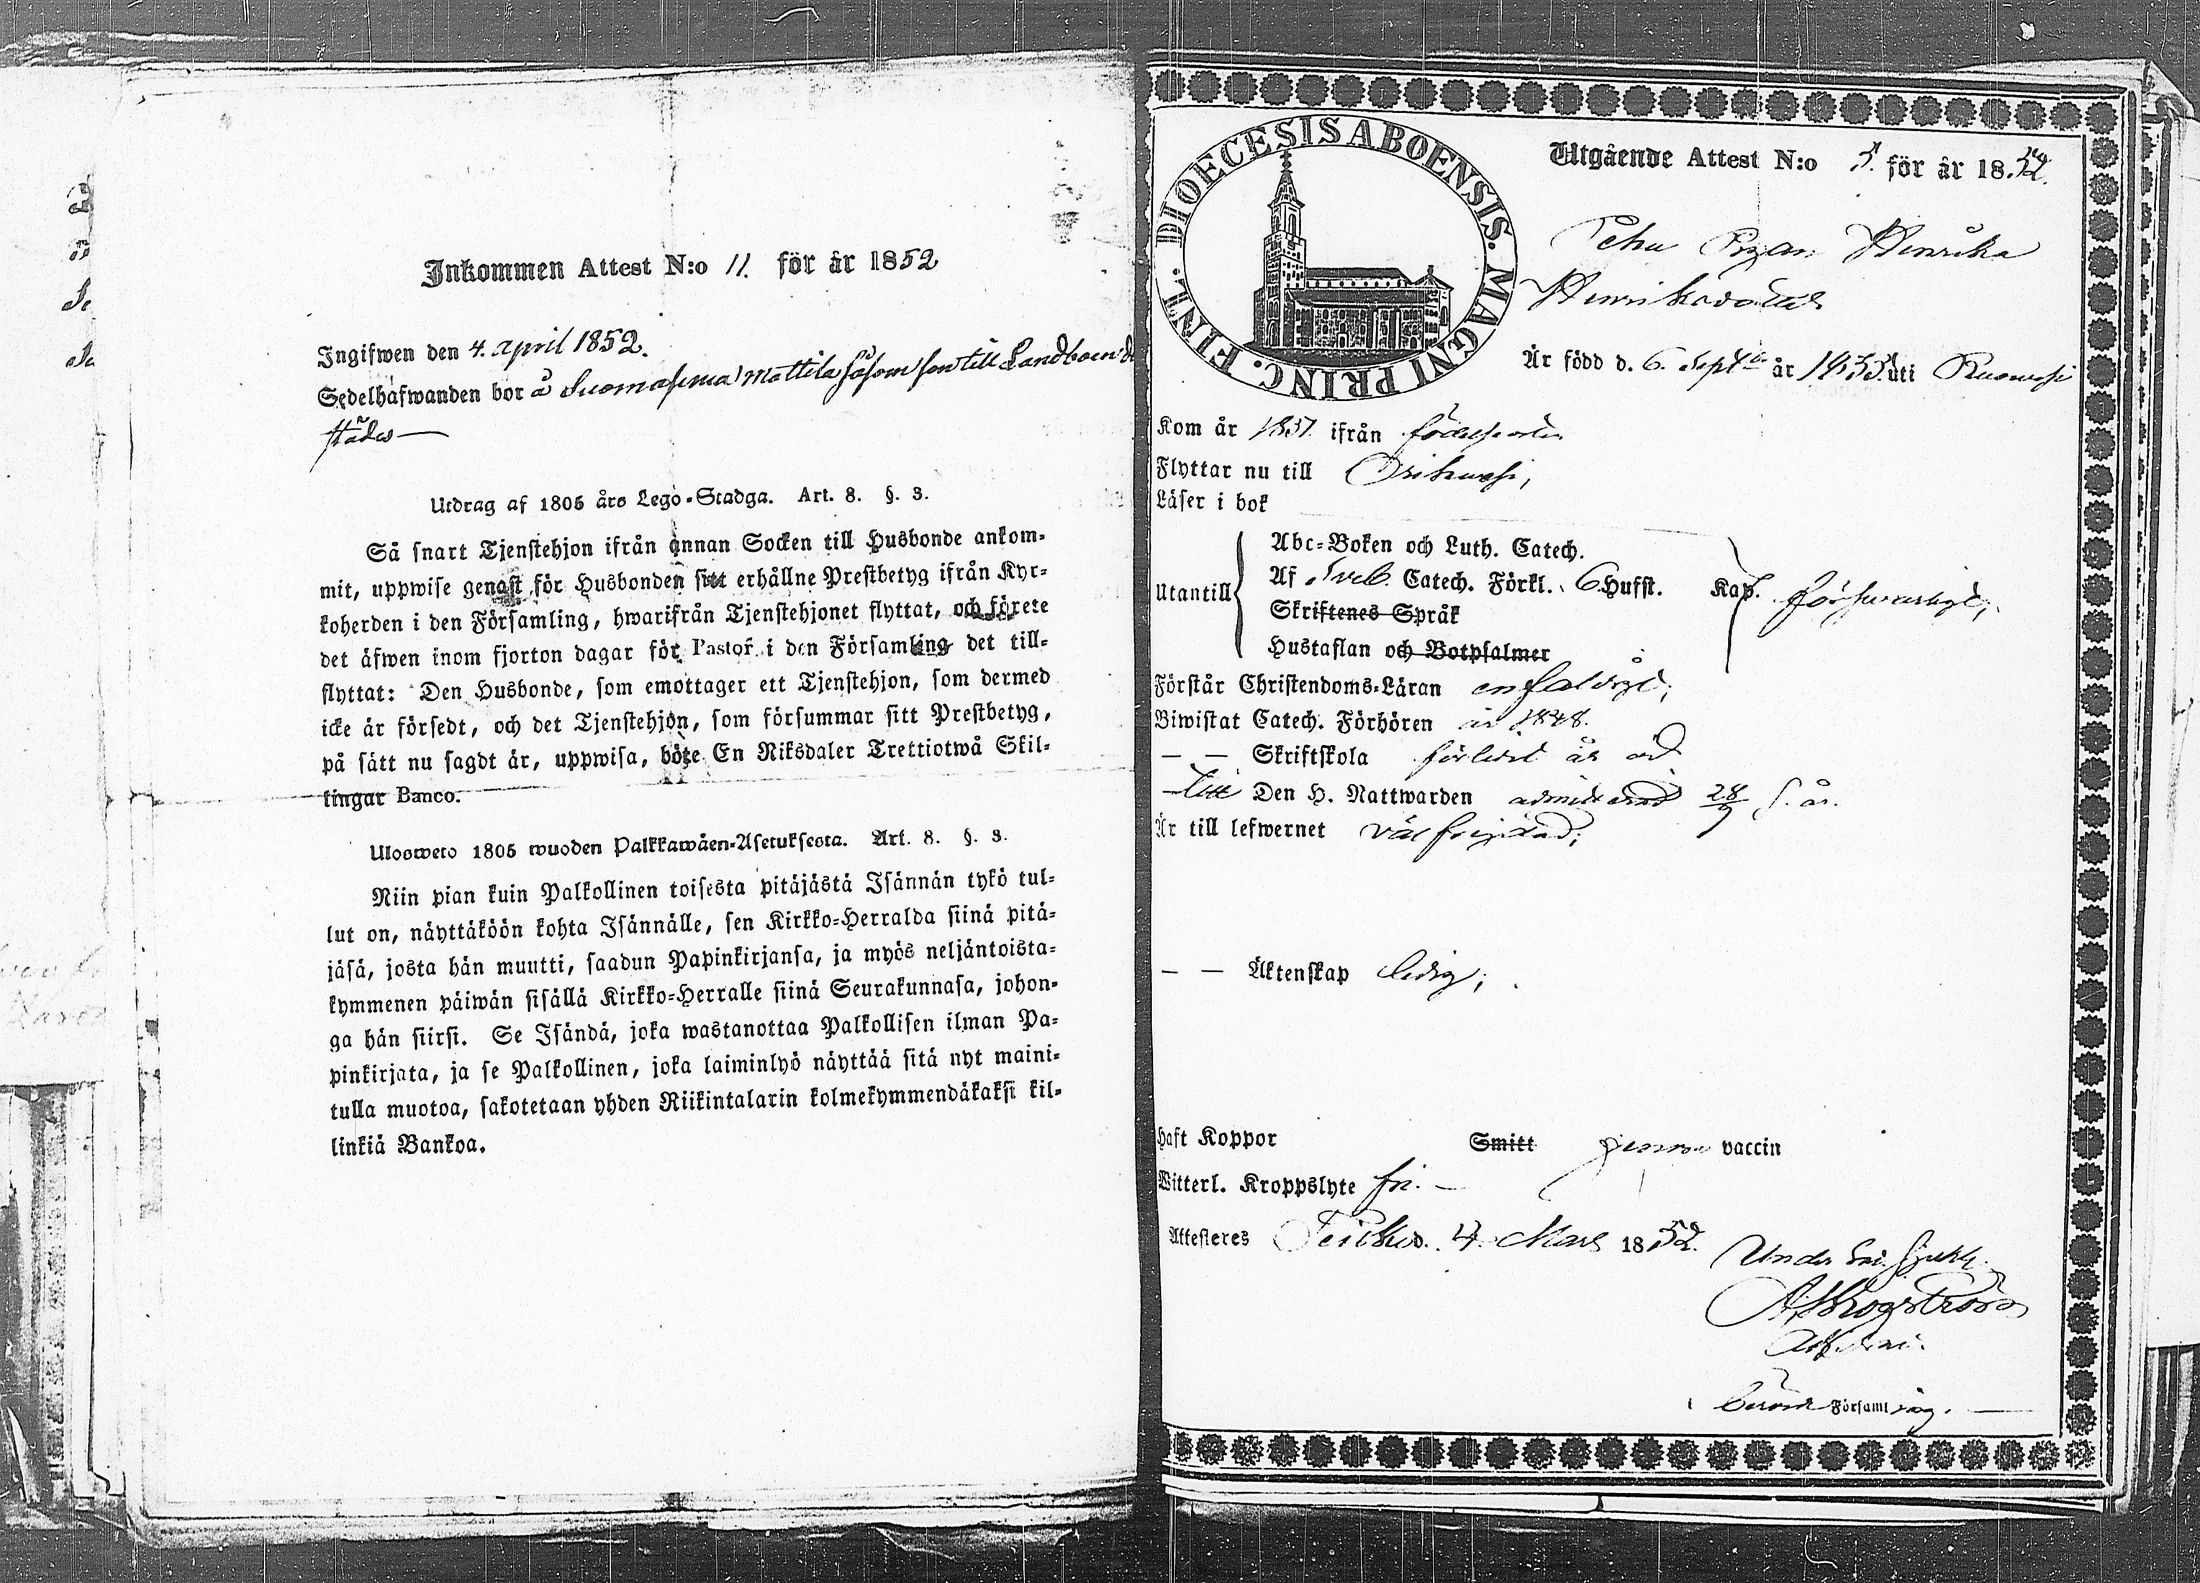 Inkommen Attest N:o 11. för år 1852
Ingifwen den 4. april 1852.
Sedelhafwanden bor å Suomasema Mattila såsom son till Landboen d
städes
Utdrag af 1805 års Lego-Stadga. Art. 8. §. 3.
Så snart Tjenstehjon ifrån annan Socken till Husbonde ankom-
mit, uppwise genast för Husbonden sitt erhållne Prestbetyg ifrån Kyr-
koherden i den Församling, hwarifrån Tjenstehjonet flyttat, och förete
det äfwen inom fjorton dagar för Pastor i den Församling det till-
flyttat: Den Husbonde, som emottager ett Tjenstehjon, som dermed
icke är försedt, och det Tjenstehjon, som försummar sitt Prestbetyg,
på sätt nu sagdt är, uppwisa, böte En Riksdaler Trettiotwå Skil-
lingar Banco.
Ulosweto 1805 wuoden Palkkawäen-Asetuksesta. Art. 8. §. 3.
Niin pian kuin Palkollinen toisesta pitäjästä Isännän tykö tul-
lut on, näyttäköön kohta Isännälle, sen Kirkko-Herralda siinä pitä-
jäsä, josta hän muutti, saadun Papinkirjansa, ja myös neljäntoista-
kymmenen päiwän sisällä Kirkko-Herralle siinä Seurakunnasa, johon-
ga hän siirsi. Se Isändä, joka wastanottaa Palkollisen ilman Pa-
pinkirjata, ja se Palkollinen, joka laiminlyö näyttää sitä nyt maini-
tulla muotoa, sakotetaan yhden Riikintalarin kolmekymmendäkaksi kil-
linkiä Bankoa.
DIOECESIS ABOENSIS. MAGNI PRINC. FINL.
Utgående Attest N:o 5. för år 1852.
Henrika
Henriksdotter
Är född d. 6. Sept år 1835. uti Ruowesi
Kom år 1851. ifrån födelseorten
Flyttar nu till Orihwesi,
Läser i bok
Abc-Boken och Luth. Catech.
Utantill Af Sveb. Catech. Förkl. 6 Hufst. Kap. försvarligt,
Skriftenes Språk
Hustaflan och Botpsalmer
Förstår Christendoms-Läran enfaldigt,
Biwistat Catech. Förhören år 1848.
— — Skriftskola förledet år och
till Den H. Nattwarden admitterad 28/9 s. år.
Är till lefwernet väl frejdad;
— — Äktenskap ledig;
Haft Koppor Smitt genom vaccin
Witterl. Kroppslyte fri. —
Attesteres d. 4 Mars 1852.
Under
Församling.